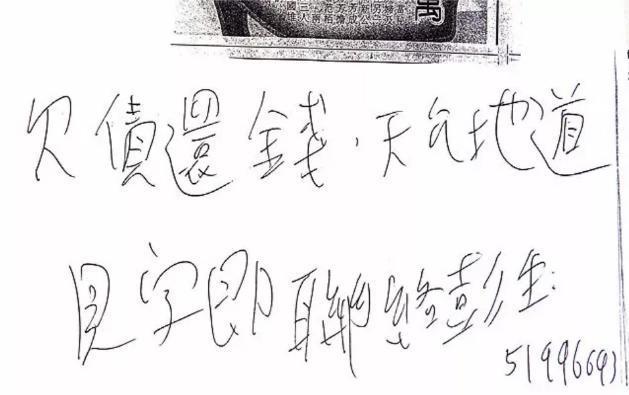 萬
欠債還錢，天冇地道
見字即聯絡彭生:
51996693